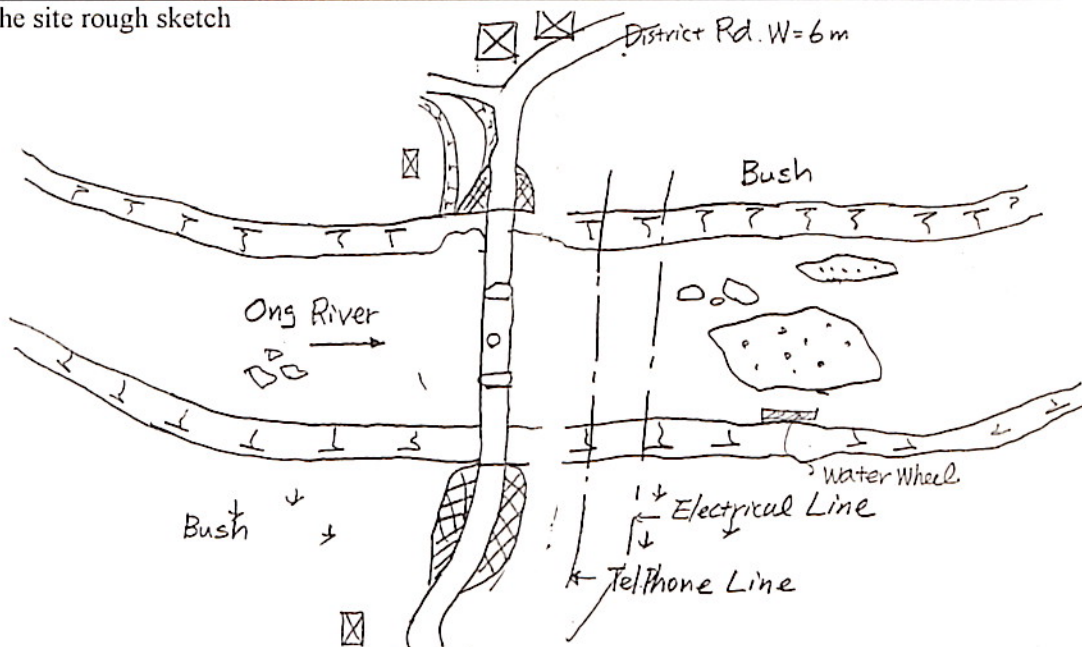 he site rough sketch
District Rd. W=6m
Bush
Ong River
Water Wheel
Bush
Electrical Line
TelPhone Line